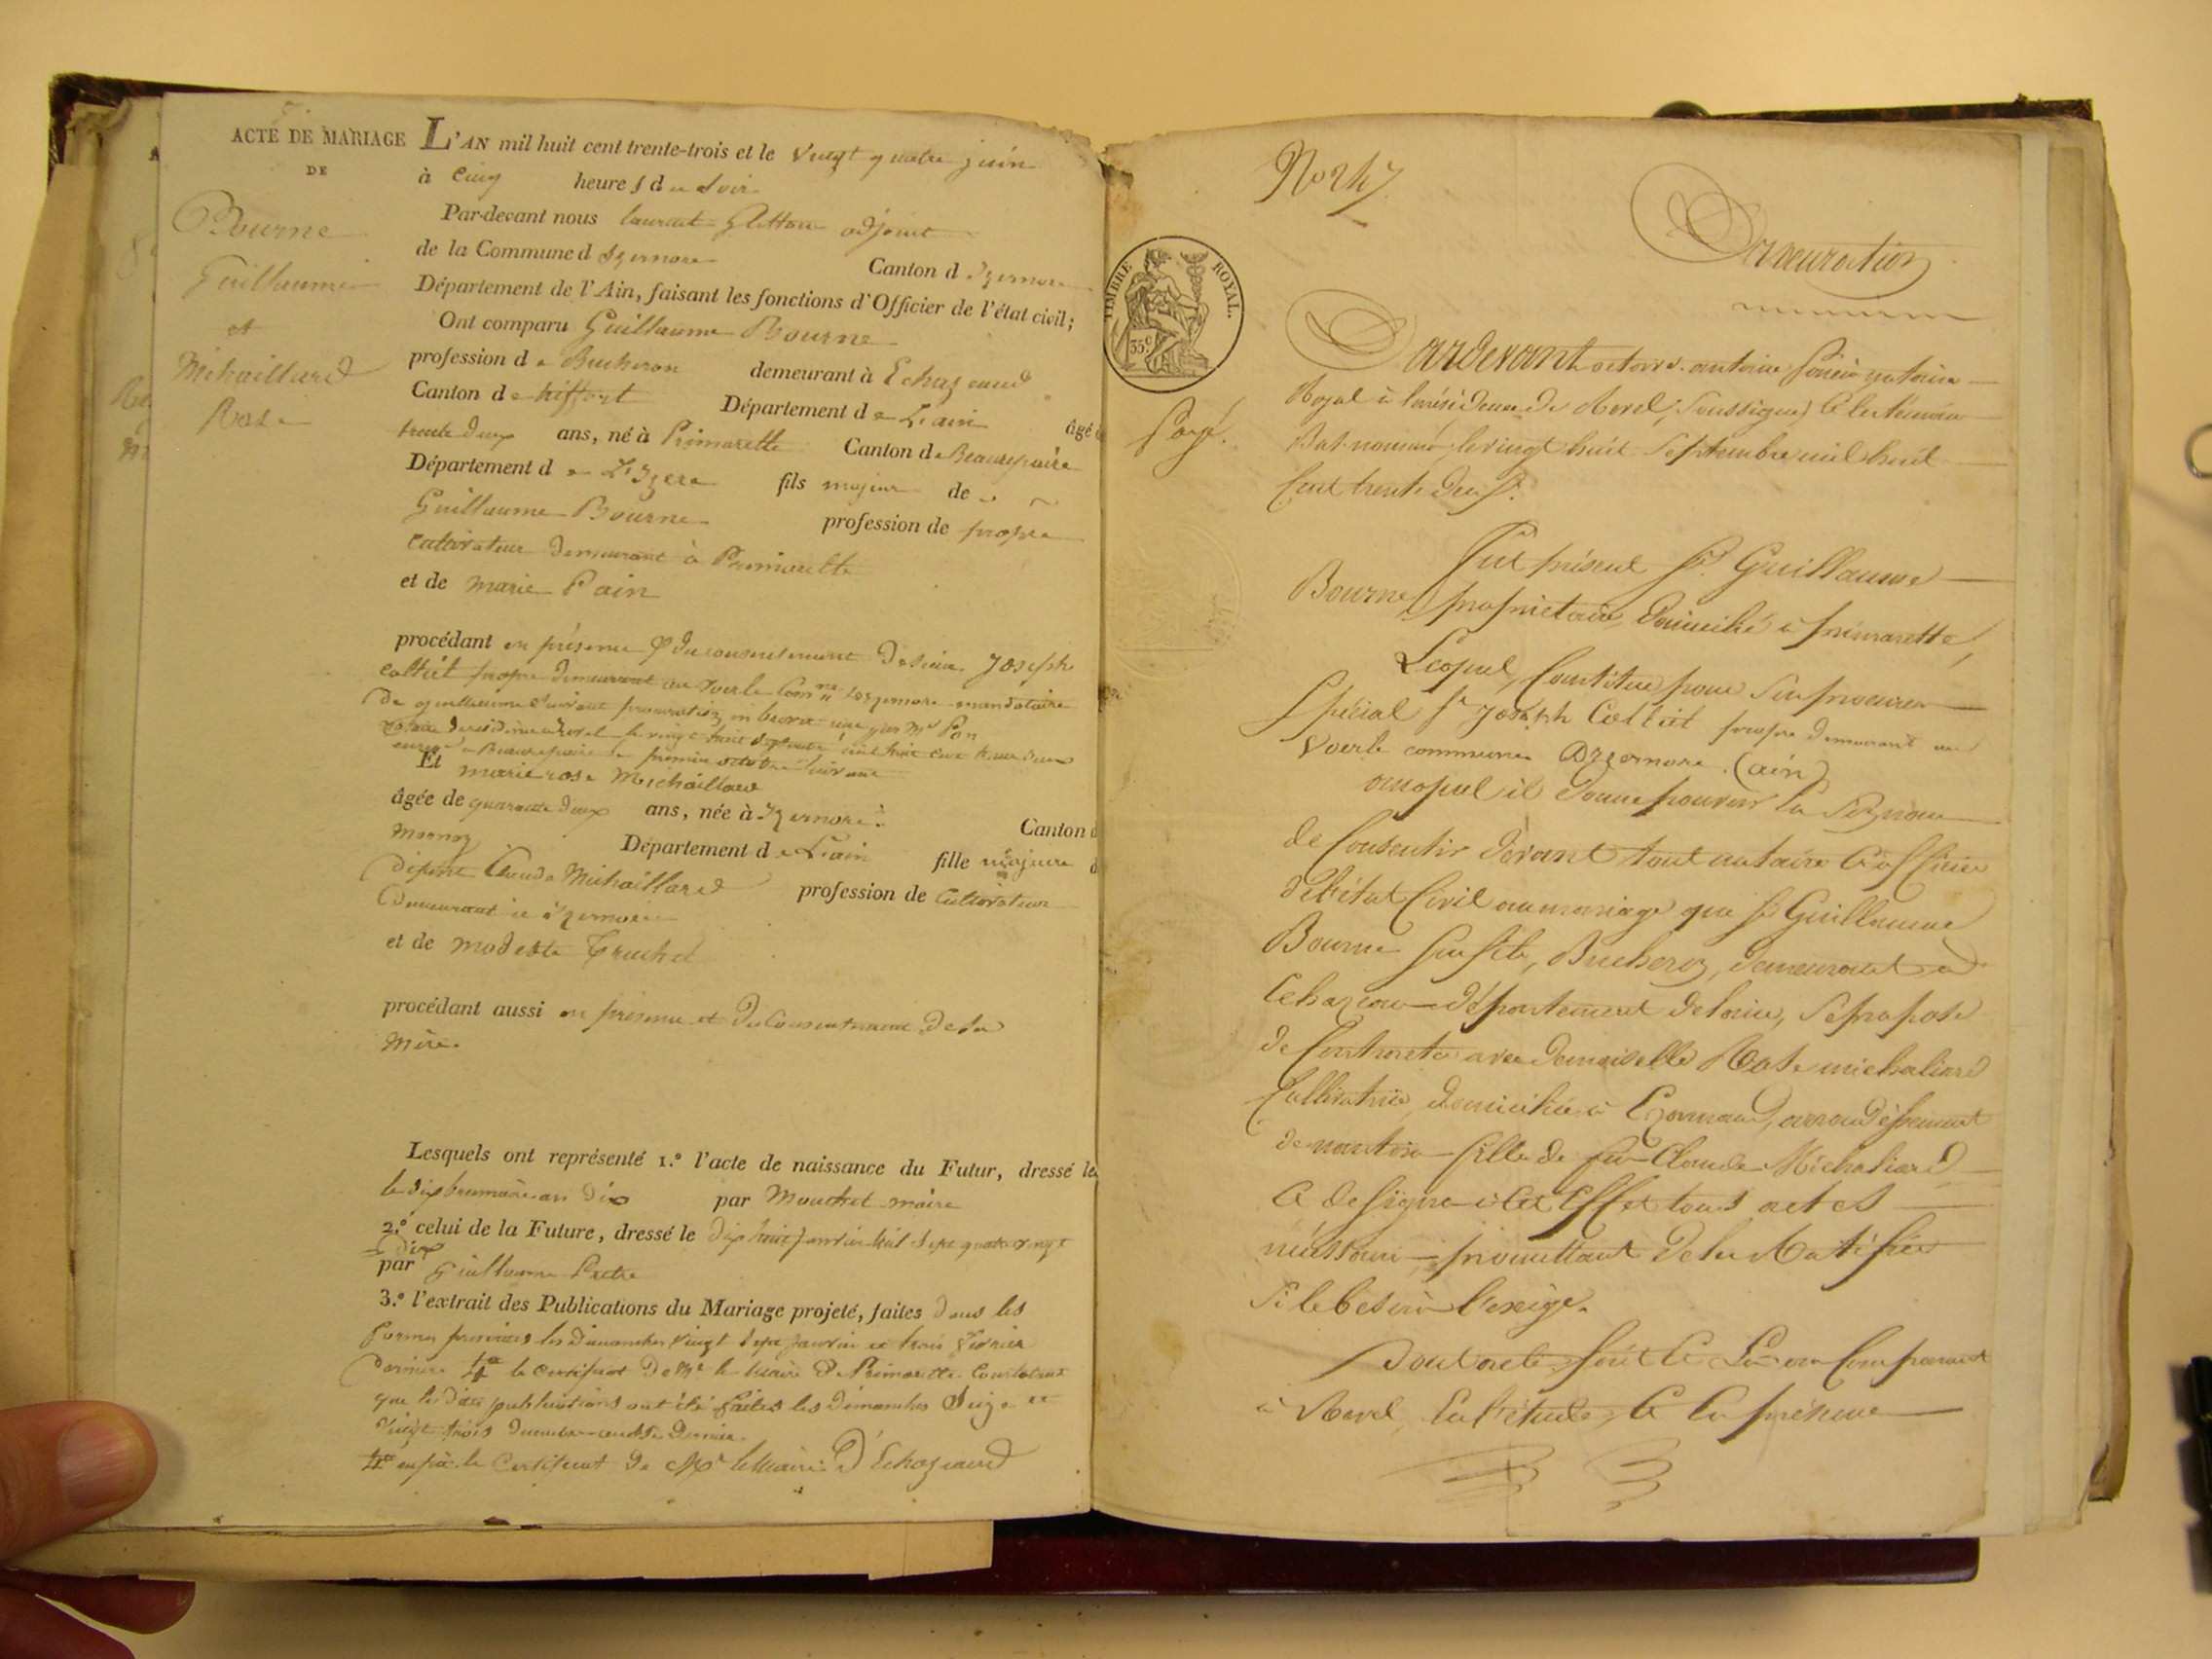 ACTE DE MARIAGE
DE
Bourne
Guillaume
et
Michaillard
Rose
L'AN mil huit cent trente-trois et le vingt quatre juin
à cinq heures du soir
Par-devant nous laurent adjoint
de la Commune d Izernore Canton d Izernore
Département de l'Ain, faisant les fonctions d'Officier de l'état civil;
Ont comparu Guillaume Bourne
profession de Bucheron demeurant à Echazeaud
Canton de Département de L'ain âgé
trente deux ans, né à Primarette Canton de Beaurepaire
Département de L'Izere fils majeur de
Guillaume Bourne profession de propre
cultivateur demeurant à Primarette
et de marie Pain
procédant en présence & du consentement de sieur Joseph
propre demeurant au Voerle mandataire
de guillaume suivant procuration
le vingt huit
le premier octobre suivant
Et marie rose Michaillard
âgée de quarante deux ans, née à Izernore Canton d
Département de L'ain fille majeure d
défunt Claude Michaillard profession de Cultivateur
demeurant à Izernore
et de modeste Truchet
procédant aussi en présence et du consentement de sa
mère.
Lesquels ont représenté 1.º l'acte de naissance du Futur, dressé le
le dix brumaire an dix par Mouchet maire
2.º celui de la Future, dressé le dix huit janvier mil sept quatre vingt
dix
par Guillaume
3.º l'extrait des Publications du Mariage projeté, faites dans les
formes prescrites les Dimanches vingt sept janvier et trois février
dernier 4º le certificat de Mr le Maire de Primarette constatant
que les dites publications ont été faites les dimanches seize et
vingt trois dernier
enfin le certificat de Mr le Maire d'Echazeaud
No 247
Procuration
TIMBRE ROYAL.
35.c
Pardevant antoine notaire
Royal à la résidence de Revel, soussigné, et les témoins
bas nommés, le vingt huit septembre mil huit
cent trente deux.
fut présent Sr. Guillaume
Bourne, propriétaire, domicilié à primarette,
Lequel, constitue pour son procureur
spécial Sr Joseph propre demeurant au
Voerle commune Dizernore (ain)
auquel il donne pouvoir
de consentir devant tout notaire et officier
de l'état civil au mariage que Sr Guillaume
Bourne son fils, Bucheron, demeurant à
Echazeau département de l'ain, se propose
de contracter avec demoiselle Rose michaliard
cultivatrice, domiciliée à arrondissement
de nantua fille de feu Claude Michaliard,
et de signer à cet effet tous actes
nécessaires, promettant de les Ratifier
si le besoin l'exige.
Dont acte fait et Lu au comparant
à Revel, en l'étude, et en présence